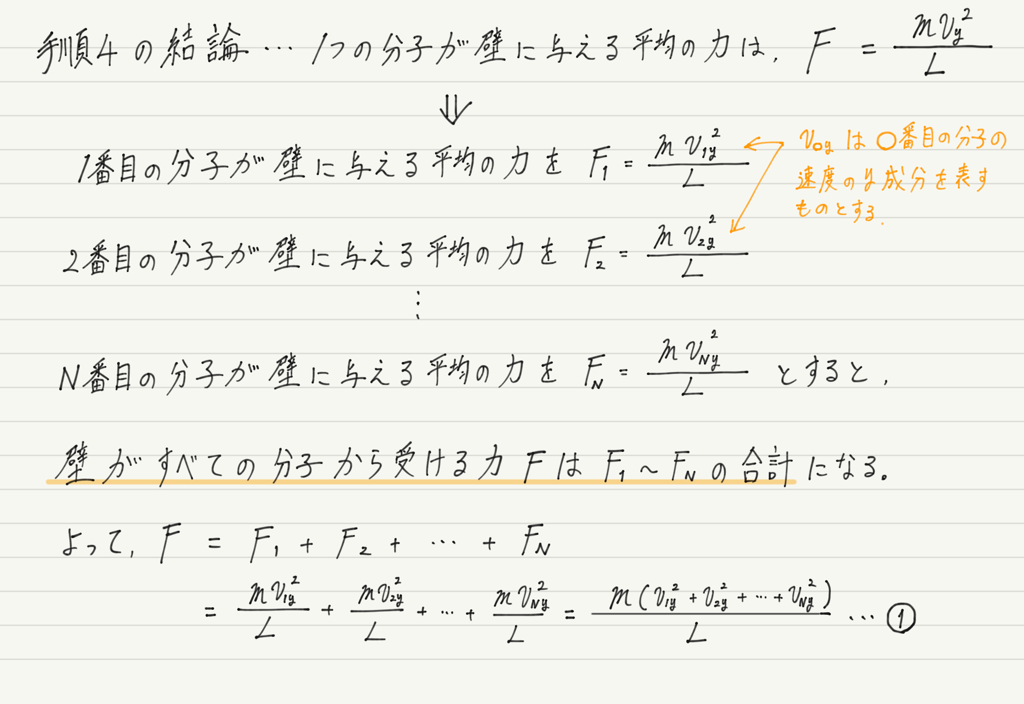 手順4の結論… 1つの分子が壁に与える平均の力は, F = mv_y²/L
⇓
1番目の分子が壁に与える平均の力を F₁ = mv_1y²/L
v_○y は ○番目の分子の
速度のy成分を表す
ものとする.
2番目の分子が壁に与える平均の力を F₂ = mv_2y²/L
⋮
N番目の分子が壁に与える平均の力を F_N = mv_Ny²/L とすると,
壁がすべての分子から受ける力FはF₁~F_Nの合計になる。
よって, F = F₁ + F₂ + … + F_N
= mv_1y²/L + mv_2y²/L + … + mv_Ny²/L = m(v_1y² + v_2y² + … + v_Ny²)/L … ①